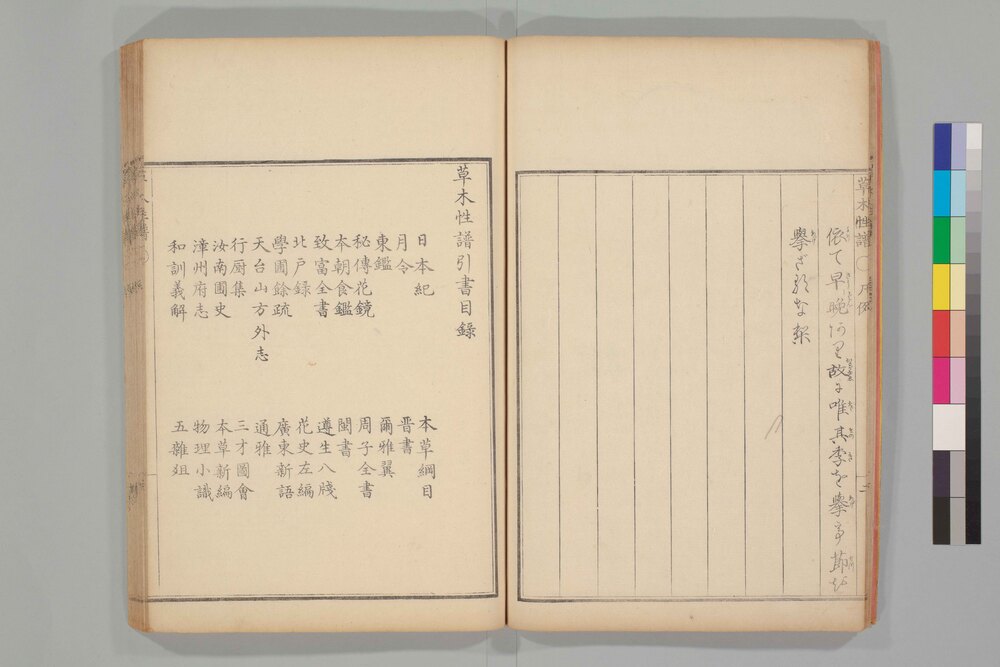 草木性譜
凡例
依て早晩あり故に唯其季を擧て節を
擧ざるなり
草木性譜引書目録
日本紀
本草綱目
月令
晋書
東鑑
爾雅翼
秘傳花鏡
周子全書
本朝食鑑
閩書
致富全書
遵生八牋
北戸録
花史左編
學圃餘疏
廣東新語
天台山方外志
通雅
行厨集
三才圖會
汝南圃史
本草新編
漳州府志
物理小識
和訓義解
五雜爼